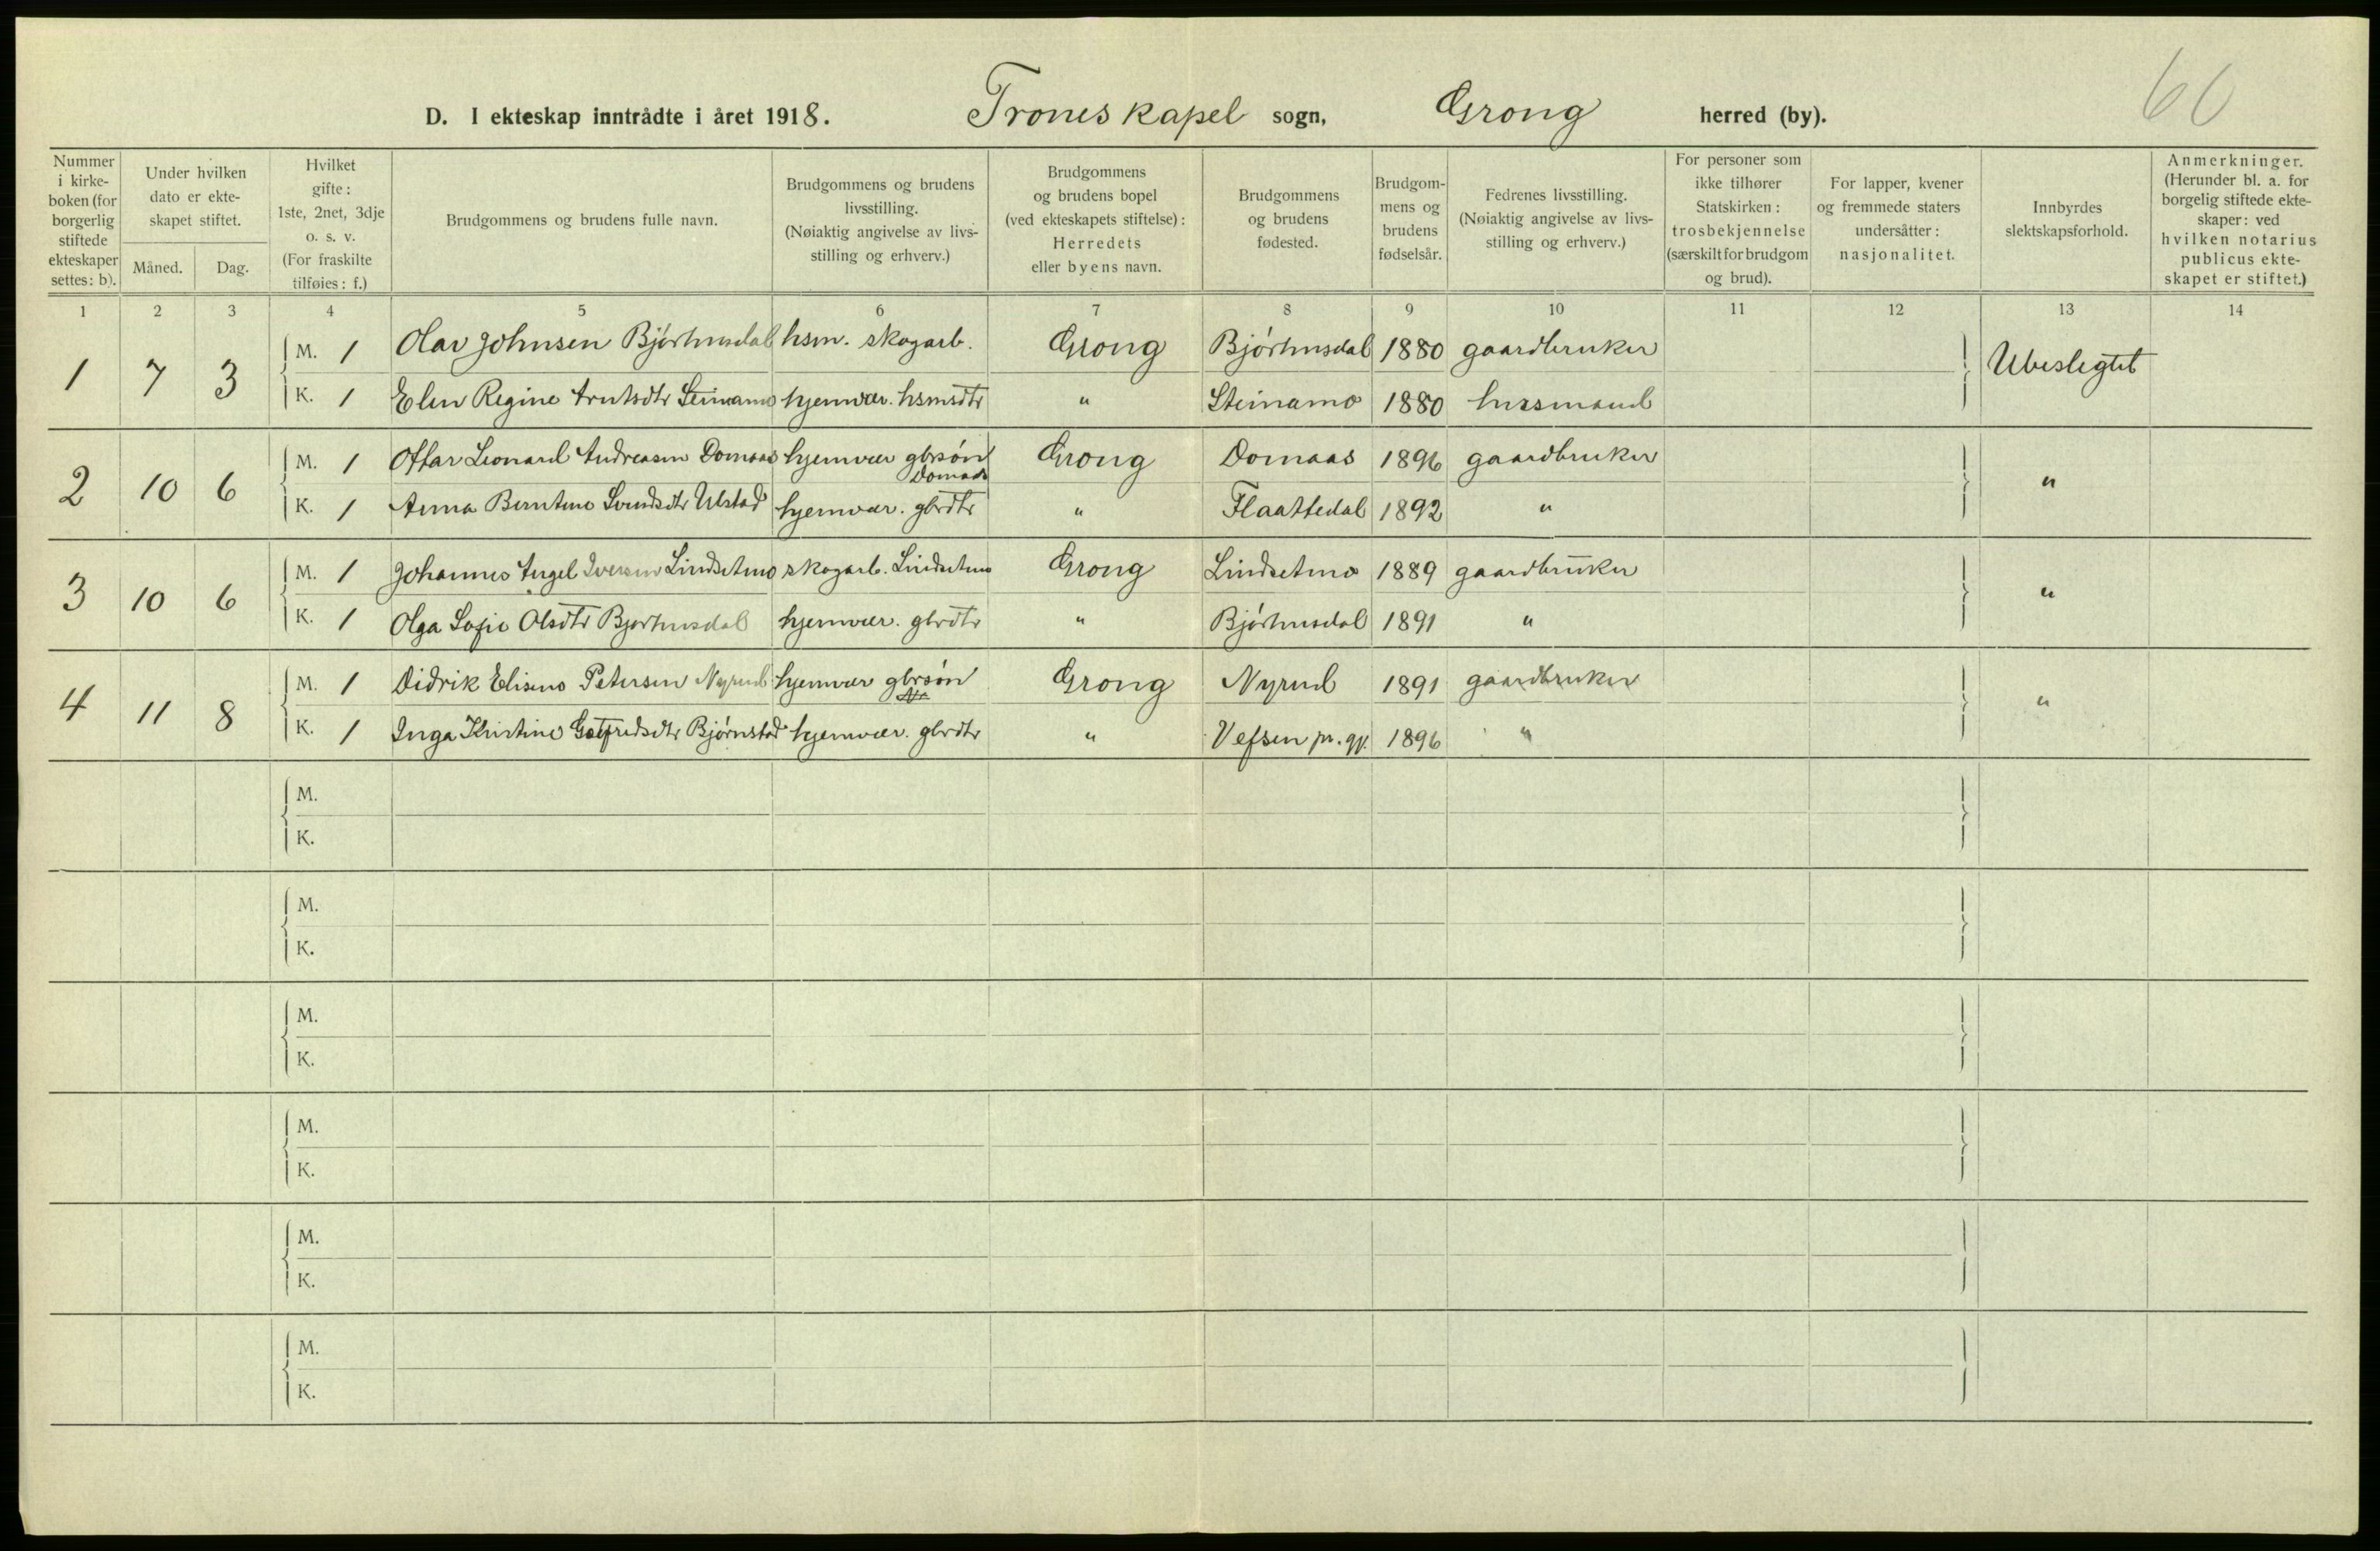 60
D. I ekteskap inntrådte i året 1918. Trones kapel sogn, Grong herred (by).
Nummer i kirke-boken (for borgerlig stiftede ekteskaper settes: b).
Under hvilken dato er ekte-skapet stiftet.
Måned. Dag.
Hvilket gifte: 1ste, 2net, 3dje o. s. v. (For fraskilte tilføies: f.)
Brudgommens og brudens fulle navn.
Brudgommens og brudens livsstilling. (Nøiaktig angivelse av livs-stilling og erhverv.)
Brudgommens og brudens bopel (ved ekteskapets stiftelse): Herredets eller byens navn.
Brudgommens og brudens fødested.
Brudgom-mens og brudens fødselsår.
Fedrenes livsstilling. (Nøiaktig angivelse av livs-stilling og erhverv.)
For personer som ikke tilhører Statskirken: trosbekjennelse (særskilt for brudgom og brud).
For lapper, kvener og fremmede staters undersåtter: nasjonalitet.
Innbyrdes slektskapsforhold.
Anmerkninger. (Herunder bl. a. for borgelig stiftede ekte-skaper: ved hvilken notarius publicus ekte-skapet er stiftet.)
1 2 3 4 5 6 7 8 9 10 11 12 13 14
1 7 3 M. 1 Olav Johnsen Bjørhusdal hsm. skogarb. Grong Bjørhusdal 1880 gaardbruker Ubeslegtet
K. 1 Elen Regine Arntsdtr Steinamo hjemvær. hsmsdtr " Steinamo 1880 husmand
2 10 6 M. 1 Ottar Leonard Andreasen Domaas hjemvær gbrsøn Domaas Grong Domaas 1896 gaardbruker "
K. 1 Anna Berntine Svendsdtr Ulstad hjemvær. gbrdtr " Flaattedal 1892 "
3 10 6 M. 1 Johannes Angel Iversen Lindsetmo skogarb. Lindsetmo Grong Lindsetmo 1889 gaardbruker "
K. 1 Olga Sofie Olsdtr Bjørhusdal hjemvær. gbrdtr " Bjørhusdal 1891 "
4 11 8 M. 1 Didrik Eliseus Petersen Nyrud hjemvær gbrsøn Grong Nyrud 1891 gaardbruker "
K. 1 Inga Kristine Gotfredsdtr Bjørnstad hjemvær. gbrdtr " Vefsen pr. gj. 1896 "
M.
K.
M.
K.
M.
K.
M.
K.
M.
K.
M.
K.